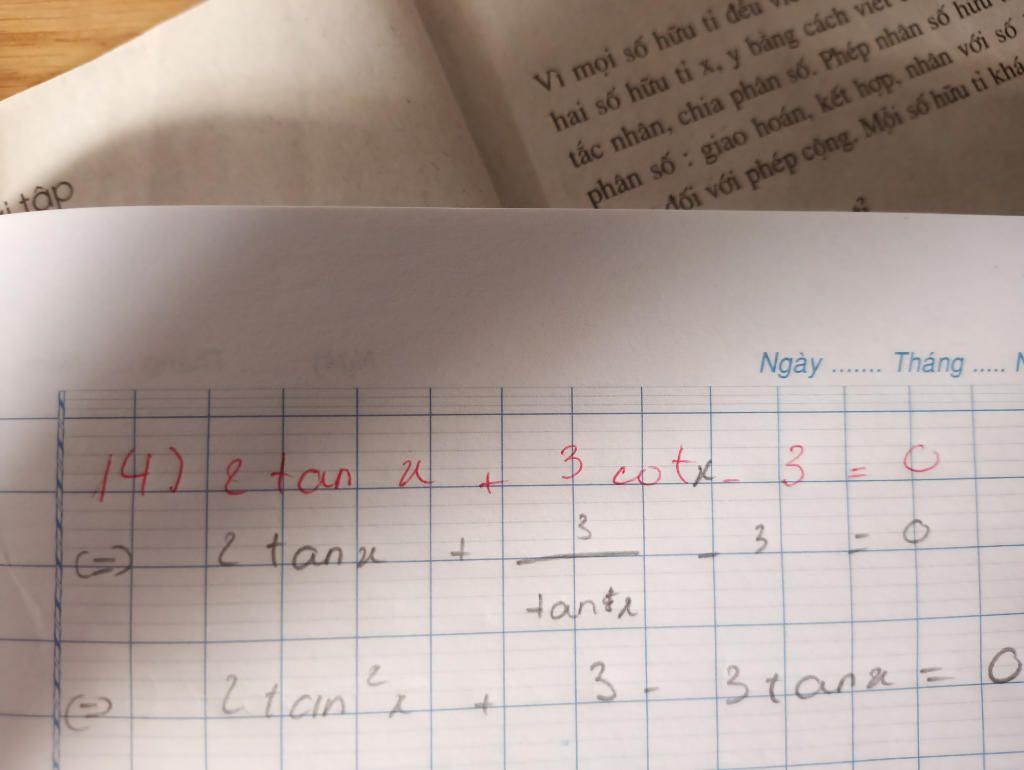 Vì mọi số hữu tỉ đều
hai số hữu tỉ x, y bằng cách viết
tắc nhân, chia phân số. Phép nhân số hữu
phân số : giao hoán, kết hợp, nhân với số
đối với phép cộng. Mỗi số hữu tỉ
tập
Ngày ....... Tháng .....
14) 2 tan x + 3 cot x - 3 = 0
(=) 2 tan x + 3 / tan x - 3 = 0
(=) 2 tan² x + 3 - 3 tan x = 0